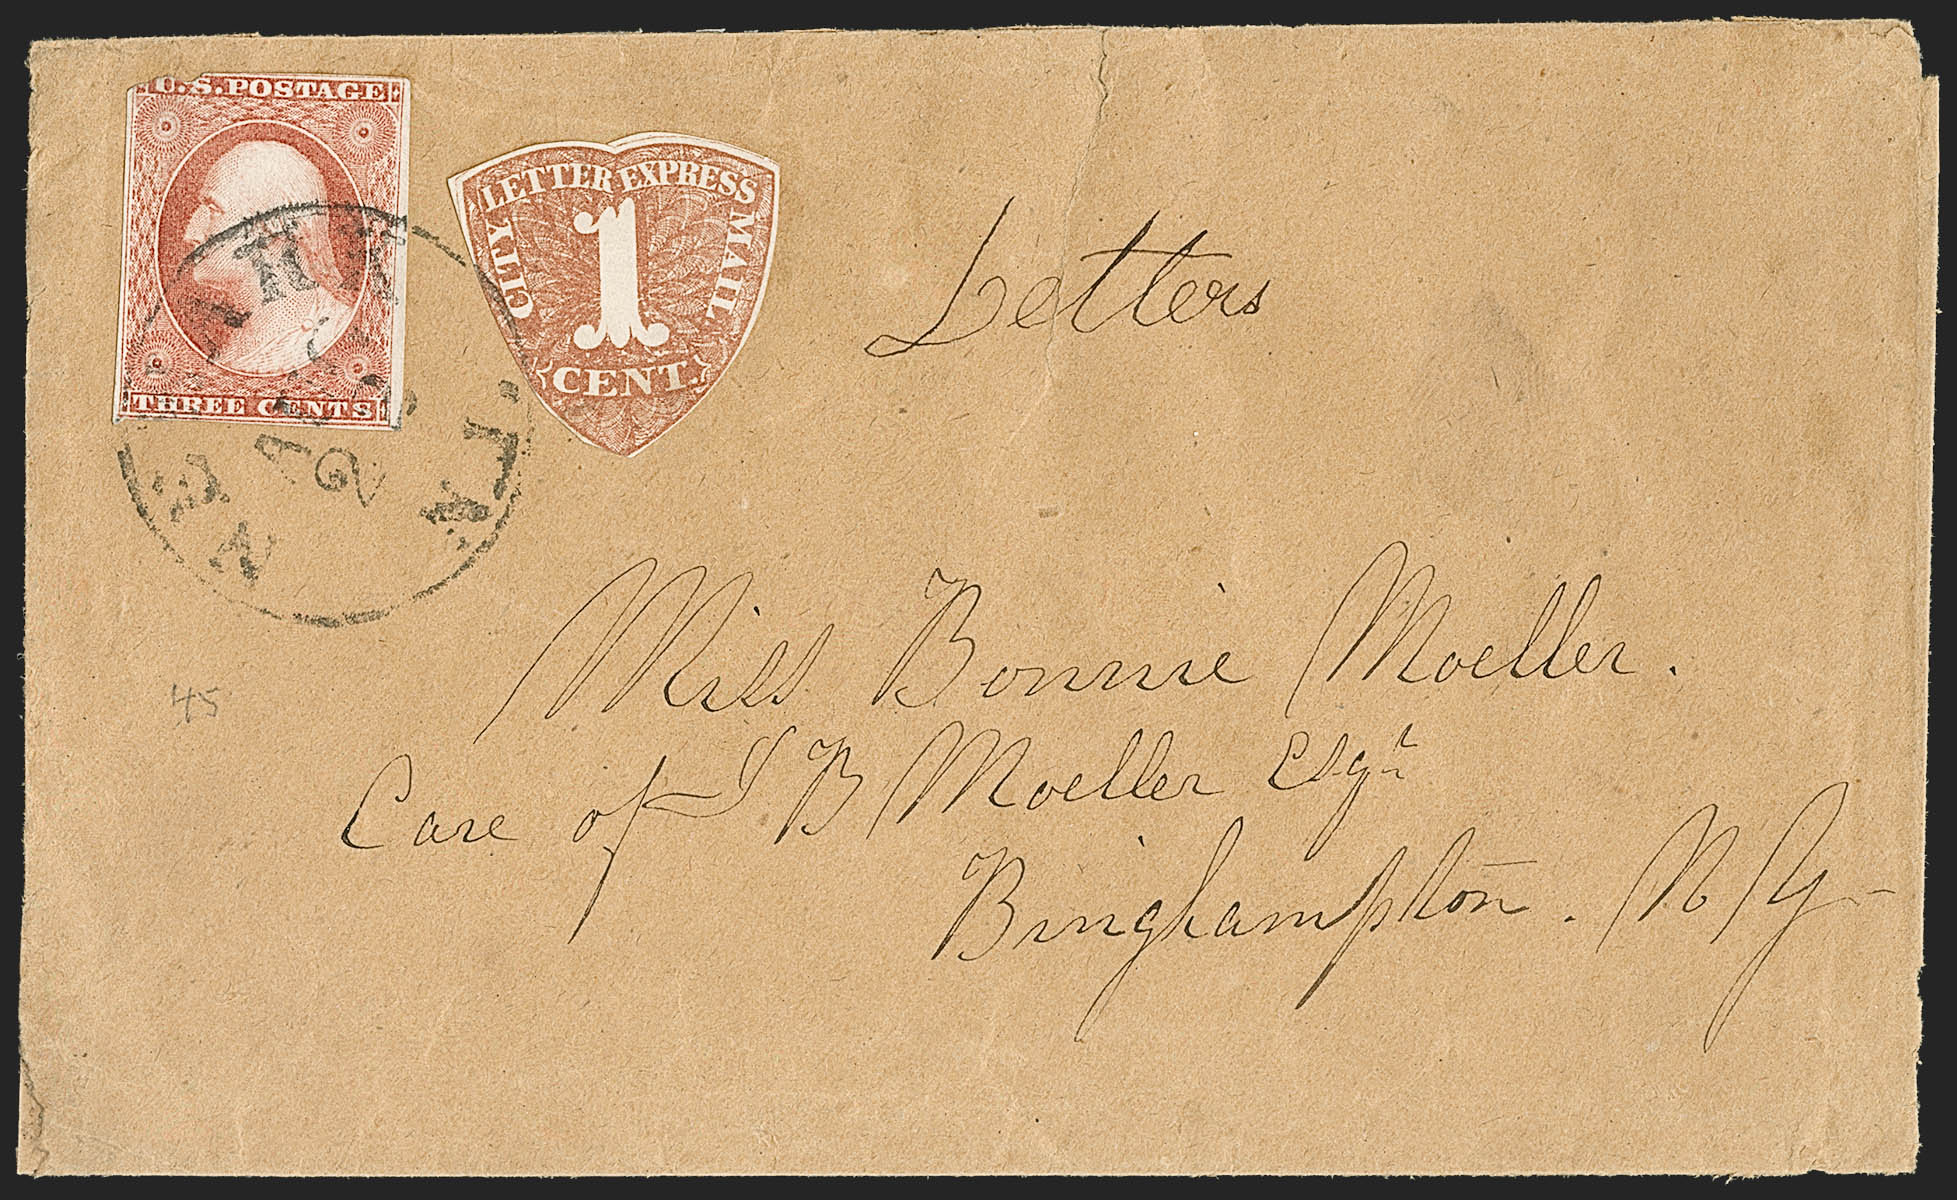 U.S. POSTAGE
THREE CENTS
CITY LETTER EXPRESS MAIL
1
CENT.
Letters
Miss Bonnie Moeller.
Care of S B Moeller Esqr
Binghampton. N Y
45